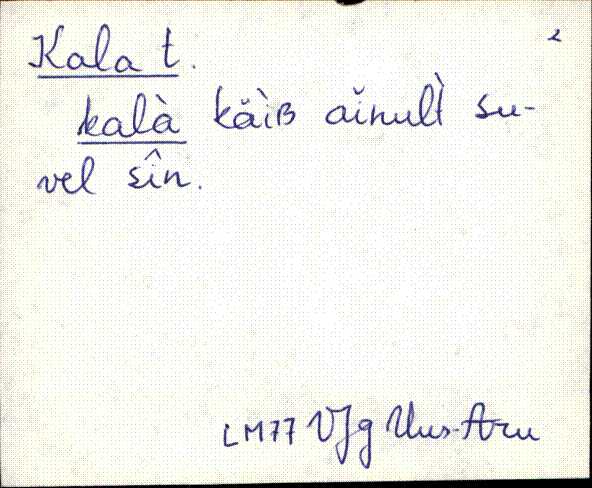 Kala t.
2
kalà kăìʙ aĭnult̀ su-
vel sîn.
LM77 VJg Uus-Aru